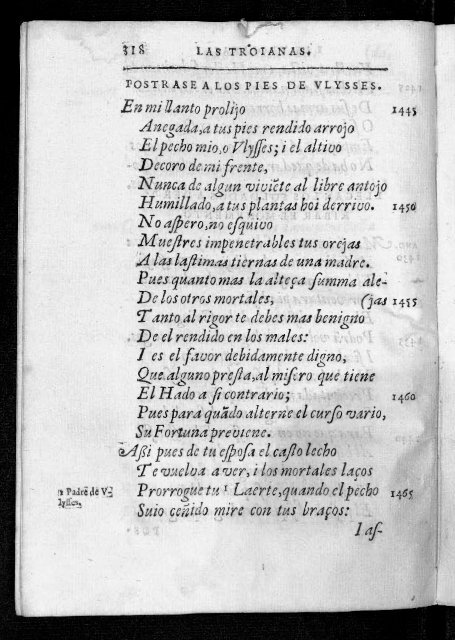 318 LAS TROIANAS.
POSTRASE A LOS PIES DE VLYSSES.
En mi llanto prolijo 1445
Anegada, a tus pies rendido arrojo
El pecho mio, o Vlysses; i el altivo
Decoro de mi frente,
Nunca de algun viviẽte al libre antojo
Humillado, a tus plantas hoi derrivo. 1450
No aspero, no esquivo
Muestres impenetrables tus orejas
A las lastimas tiernas de una madre.
Pues quanto mas la alteça summa ale-
De los otros mortales, (jas 1455
Tanto al rigor te debes mas benigno
De el rendido en los males:
I es el favor debidamente digno,
Que alguno presta, al misero que tiene
El Hado a si contrario; 1460
Pues para quãdo alterne el curso vario,
Su Fortuna previene.
Assi pues de tu esposa el casto lecho
Te vuelva a ver, i los mortales laços
1 Padrẽ de V- Prorrogue tu 1 Laerte, quando el pecho 1465
lysses. Suio ceñido mire con tus braços:
I as-